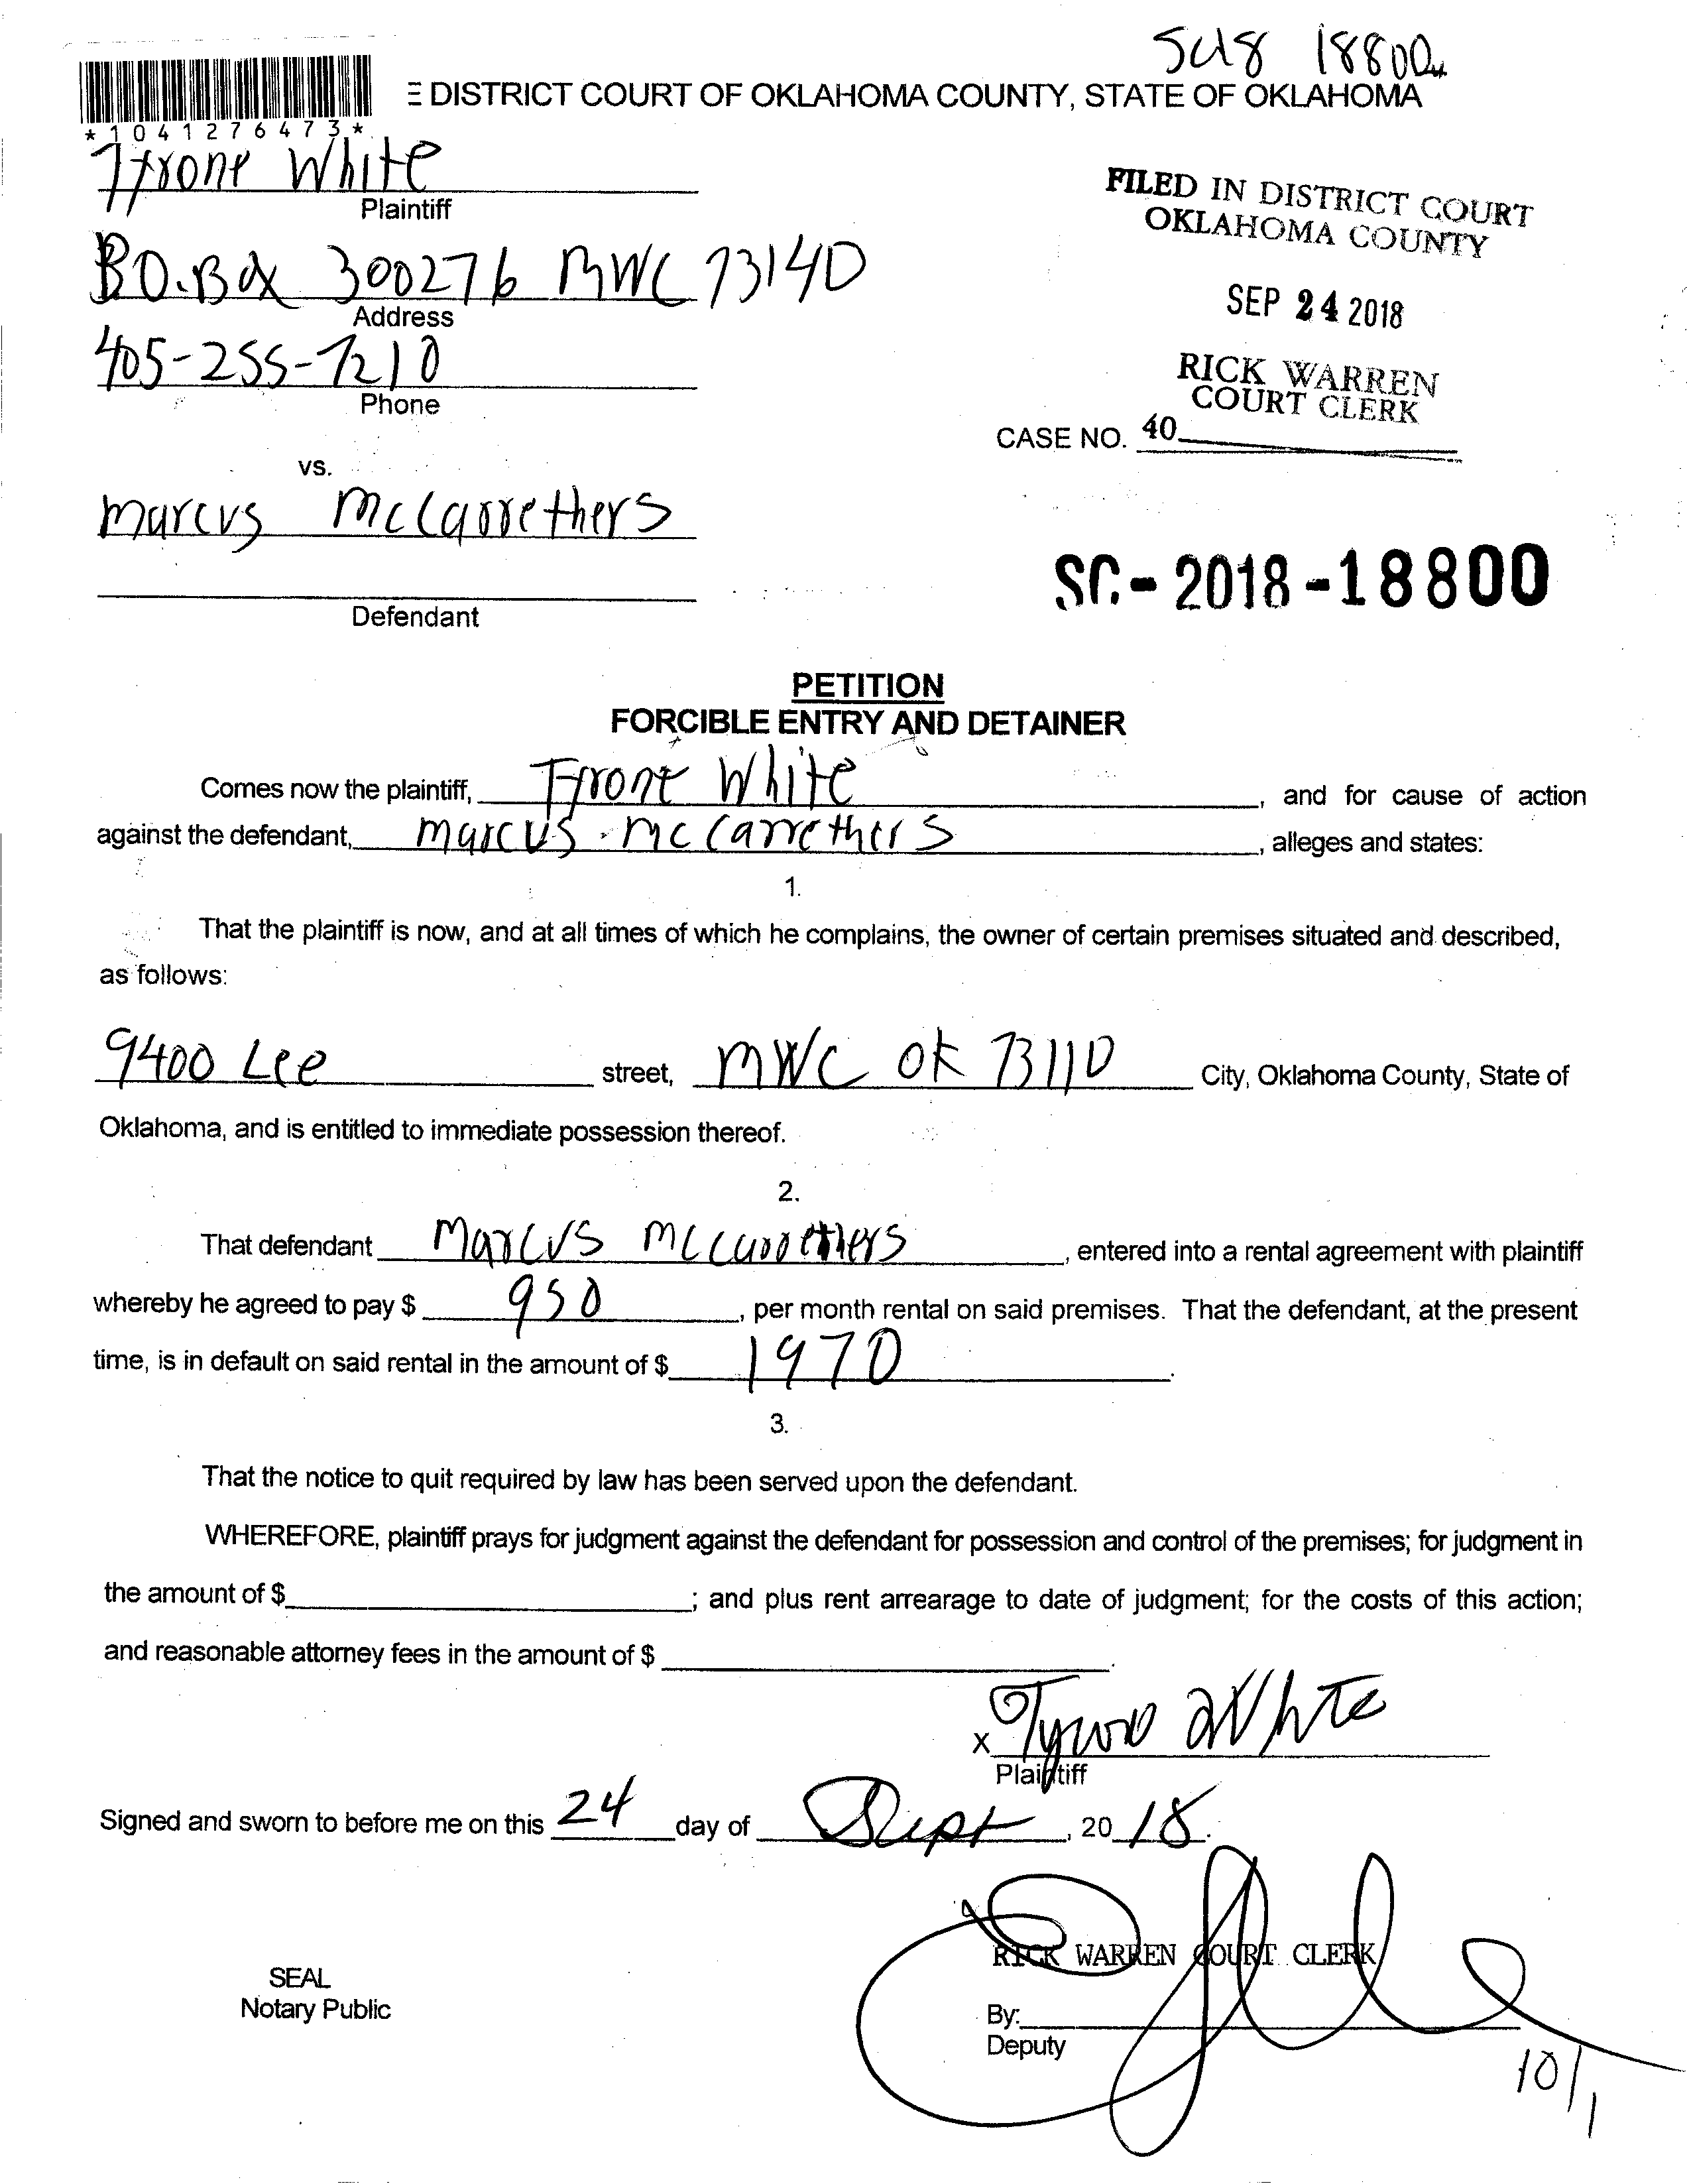 SC18 18800
E DISTRICT COURT OF OKLAHOMA COUNTY, STATE OF OKLAHOMA
*1041276473*
Tyrone White
Plaintiff
P.O. Box 300276 MWC 73140
Address
405-255-7210
Phone
FILED IN DISTRICT COURT
OKLAHOMA COUNTY
SEP 24 2018
RICK WARREN
COURT CLERK
CASE NO. 40
vs.
Marcus McCarrethers
Defendant
SC-2018-18800
PETITION
FORCIBLE ENTRY AND DETAINER
Comes now the plaintiff, Tyrone White, and for cause of action
against the defendant, Marcus McCarrethers, alleges and states:
1.
That the plaintiff is now, and at all times of which he complains, the owner of certain premises situated and described,
as follows:
9400 Lee street, MWC OK 73110 City, Oklahoma County, State of
Oklahoma, and is entitled to immediate possession thereof.
2.
That defendant Marcus McCarrethers, entered into a rental agreement with plaintiff
whereby he agreed to pay $ 950, per month rental on said premises. That the defendant, at the present
time, is in default on said rental in the amount of $ 1970.
3.
That the notice to quit required by law has been served upon the defendant.
WHEREFORE, plaintiff prays for judgment against the defendant for possession and control of the premises; for judgment in
the amount of $ ; and plus rent arrearage to date of judgment; for the costs of this action;
and reasonable attorney fees in the amount of $ .
X Tyrone White
Plaintiff
Signed and sworn to before me on this 24 day of Sept, 20 18.
RICK WARREN COURT CLERK
SEAL
Notary Public
By:
Deputy
10/1